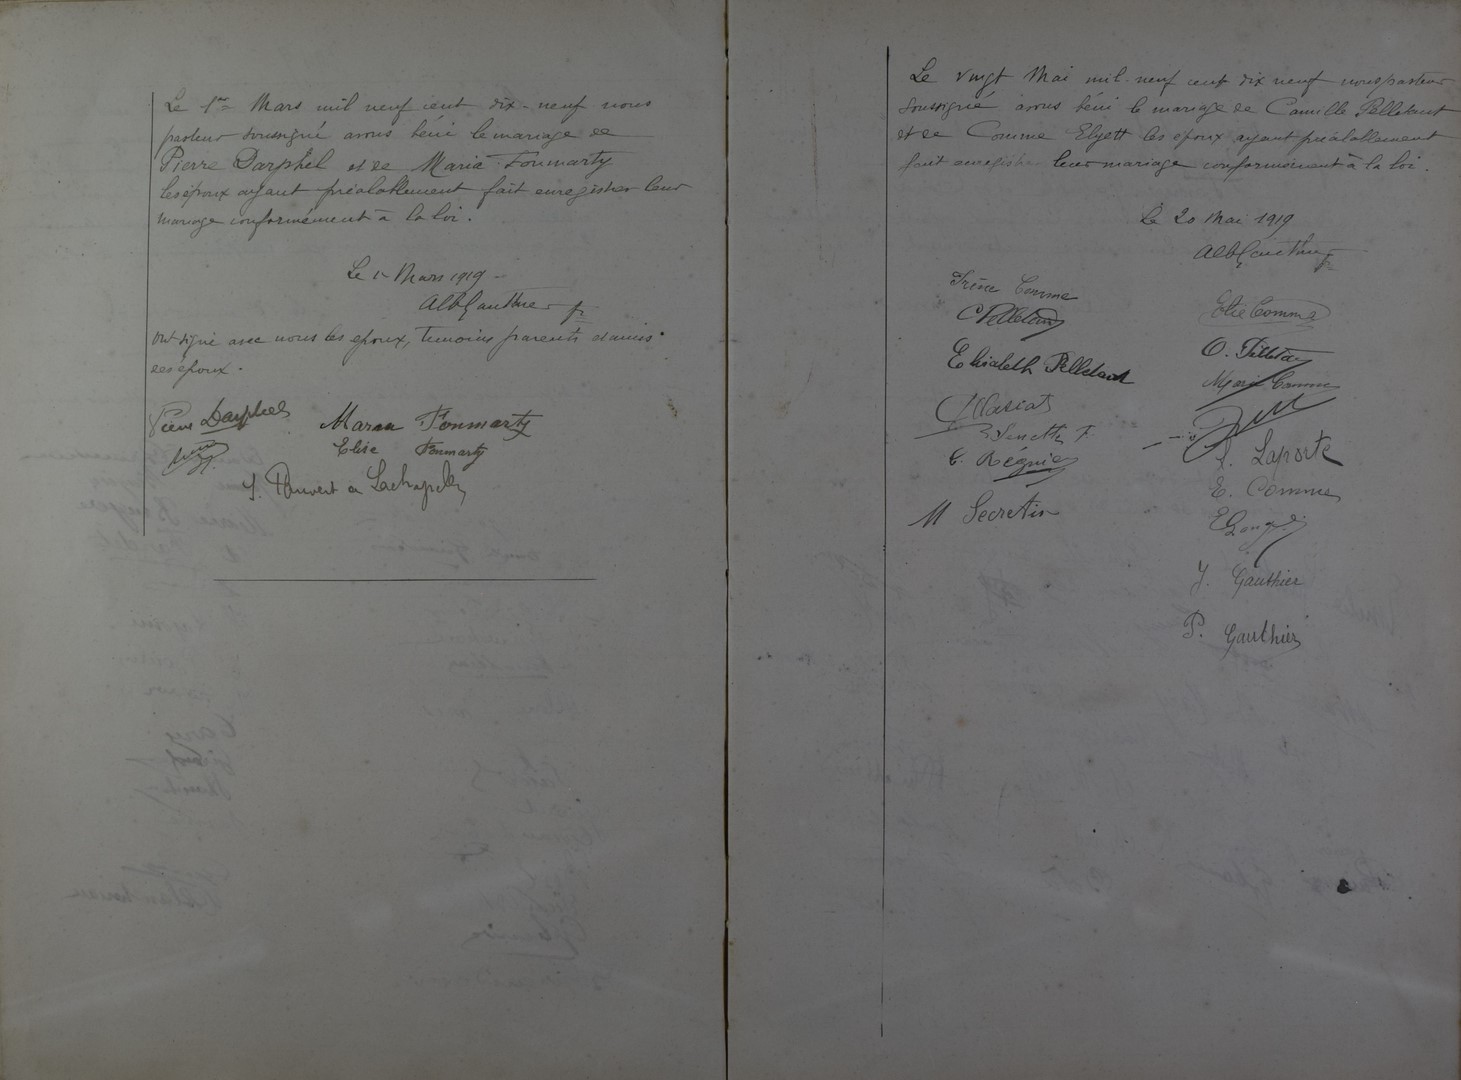 Le 1er Mars mil neuf cent dix-neuf nous
pasteur soussigné avons béni le mariage de
Pierre Darphel et de Maria Fonmarty
les époux ayant préalablement fait enregistrer leur
mariage conformément à la loi.
Le 1er Mars 1919
Alb Gauthier p
Ont signé avec nous les époux, témoins parents et amis
des époux.
Pierre Darphel
Maria Fonmarty
Elise Fonmarty
Le vingt Mai mil neuf cent dix neuf nous pasteur
soussigné avons béni le mariage de Camille Pelletant
et de Comme Elyett les époux ayant préalablement
fait enregistrer leur mariage conformément à la loi.
le 20 Mai 1919
Alb Gauthier p
Irène Comme
Elie Comme
C Pelletant
Elisabeth Pelletant
Marie Comme
S. Laporte
E. Comme
M Secretin
J. Gauthier
P. Gauthier